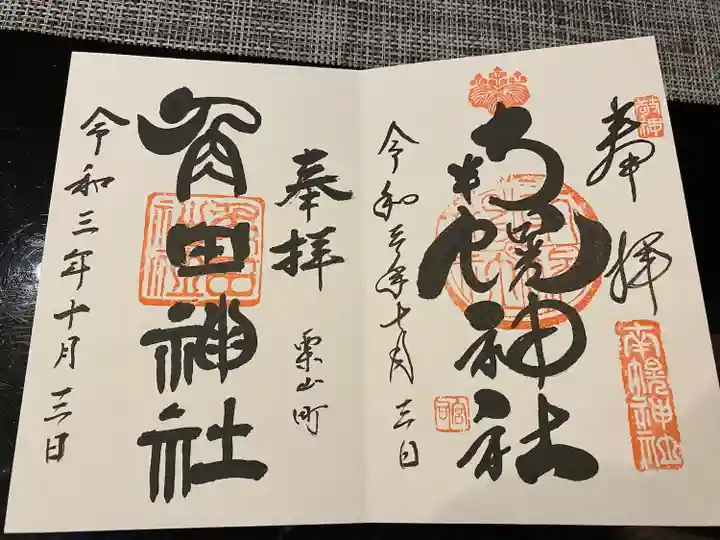 敬神
奉拝
南幌神社
南幌神社
令和三年十月三日
宮司
奉拝
栗山町
角田神社
令和三年十月三日